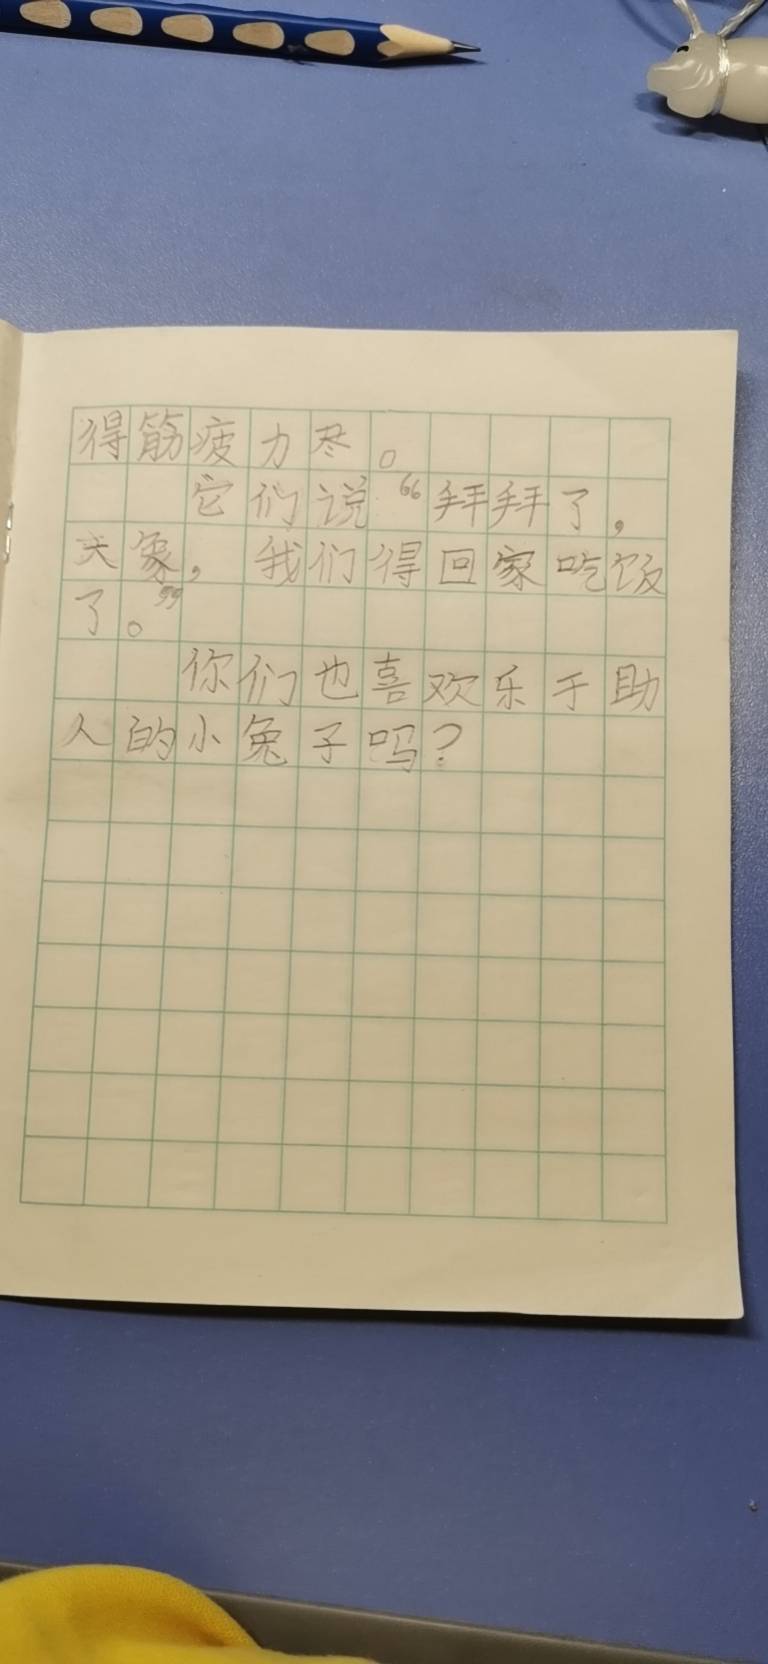 得筋疲力尽。
它们说“拜拜了，
大象，我们得回家吃饭
了。”
你们也喜欢乐于助
人的小兔子吗？